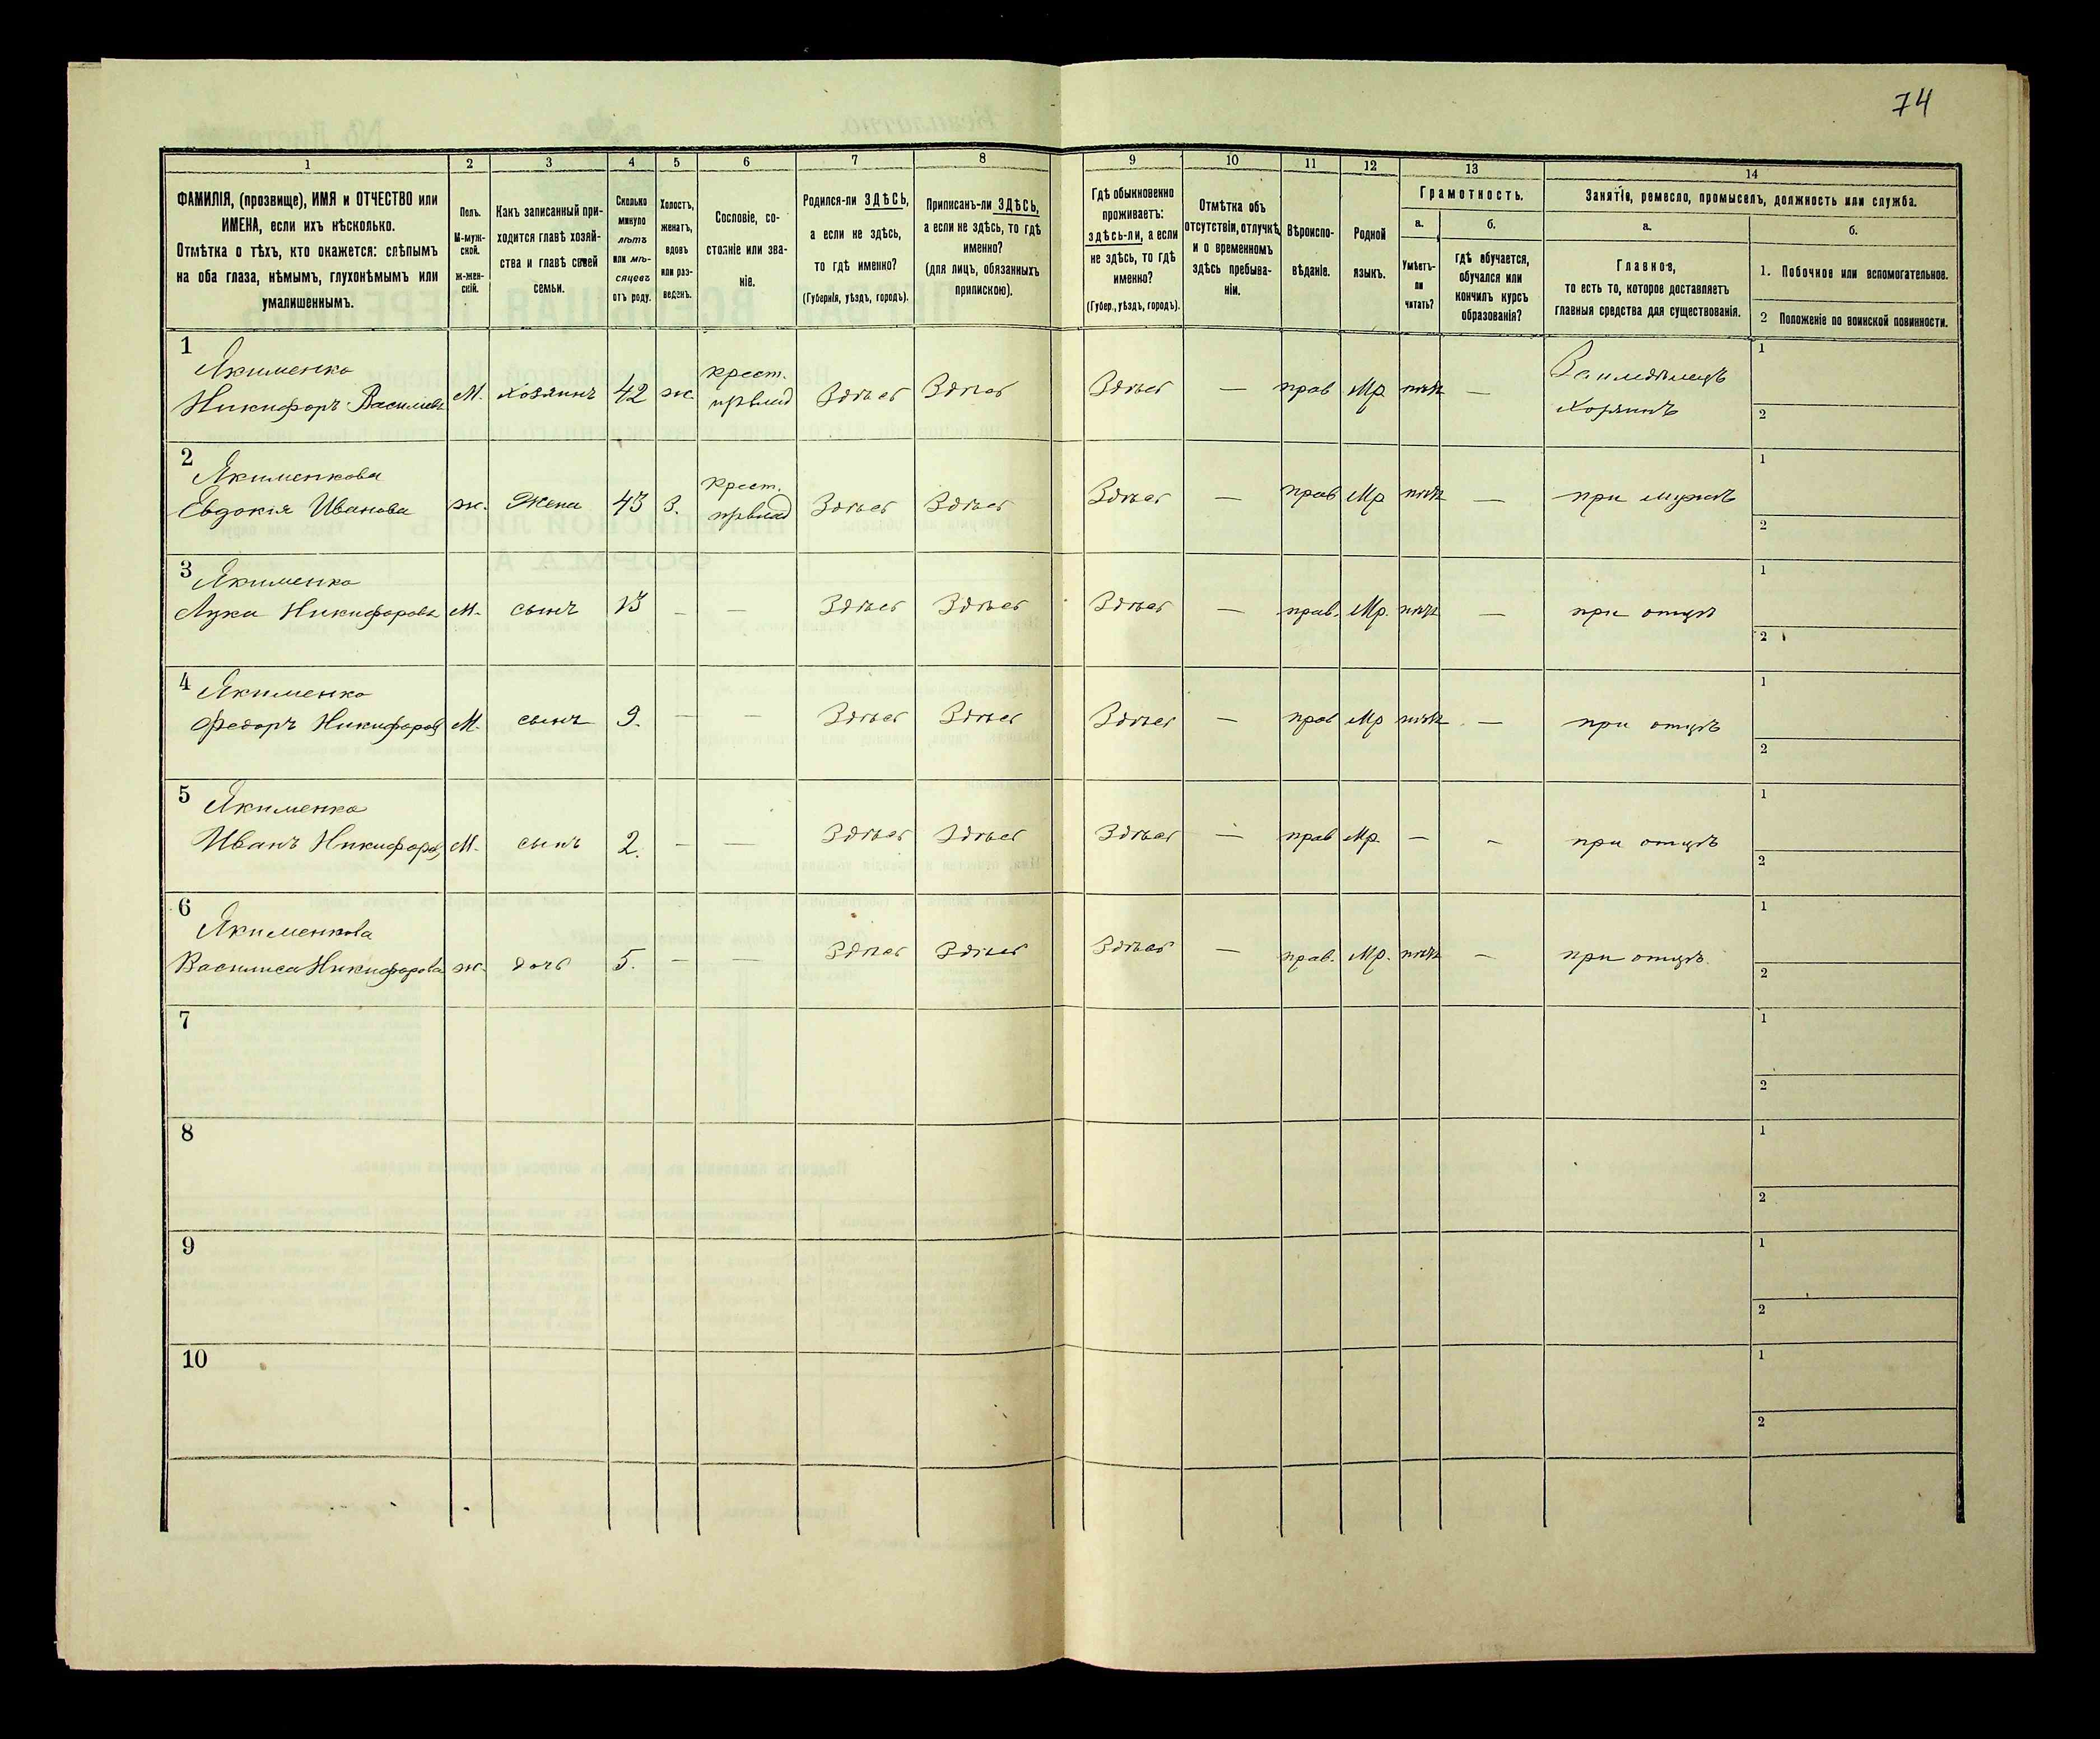 74
1 2 3 4 5 6 7 8 9 10 11 12 13 14
ФАМИЛІЯ, (прозвище), ИМЯ и ОТЧЕСТВО или
ИМЕНА, если ихъ нѣсколько.
Отмѣтка о тѣхъ, кто окажется: слѣпымъ
на оба глаза, нѣмымъ, глухонѣмымъ или
умалишеннымъ.
Полъ.
М-муж-
ской.
ж-жен-
скій.
Какъ записанный при-
ходится главѣ хозяй-
ства и главѣ своей
семьи.
Сколько
минуло
лѣтъ
или мѣ-
сяцевъ
отъ роду.
Холостъ,
женатъ,
вдовъ
или раз-
веденъ.
Сословіе, со-
стояніе или зва-
ніе.
Родился-ли ЗДѢСЬ,
а если не здѣсь,
то гдѣ именно?
(Губернія, уѣздъ, городъ).
Приписанъ-ли ЗДѢСЬ,
а если не здѣсь, то гдѣ
именно?
(для лицъ, обязанныхъ
припискою).
Гдѣ обыкновенно
проживаетъ:
здѣсь-ли, а если
не здѣсь, то гдѣ
именно?
(Губер., уѣздъ, городъ).
Отмѣтка объ
отсутствіи, отлучкѣ
и о временномъ
здѣсь пребыва-
ніи.
Вѣроиспо-
вѣданіе.
Родной
языкъ.
Грамотность.
а.
Умѣетъ-
ли
читать?
б.
гдѣ обучается,
обучался или
кончилъ курсъ
образованія?
Занятіе, ремесло, промыселъ, должность или служба.
а.
Главное,
то есть то, которое доставляетъ
главныя средства для существованія.
б.
1. Побочное или вспомогательное.
2 Положеніе по воинской повинности.
1
Якименко крест.
Никифоръ Василіевъ М. хозяинъ 42 ж. Здѣсь Здѣсь Здѣсь — прав Мр. нѣтъ —
хозяинъ
1
2
2
Якименкова крест.
Евдокія Иванова ж. Жена 43 З. Здѣсь Здѣсь Здѣсь — прав Мр нѣтъ — при мужѣ
1
2
3
Якименко
Лука Никифоровъ М. сынъ 13 — — Здѣсь Здѣсь Здѣсь — прав. Мр. нѣтъ — при отцѣ
1
2
4
Якименко
Федоръ Никифоров М. сынъ 9. — — Здѣсь Здѣсь Здѣсь — прав Мр нѣтъ — при отцѣ
1
2
5
Якименко
Иванъ Никифоров М. сынъ 2. — — Здѣсь Здѣсь Здѣсь — прав Мр. — - при отцѣ
1
2
6
Якименкова
Василиса Никифорова ж. дочь 5. — — Здѣсь Здѣсь Здѣсь — прав. Мр. нѣтъ — при отцѣ.
1
2
7
1
2
8
1
2
9
1
2
10
1
2